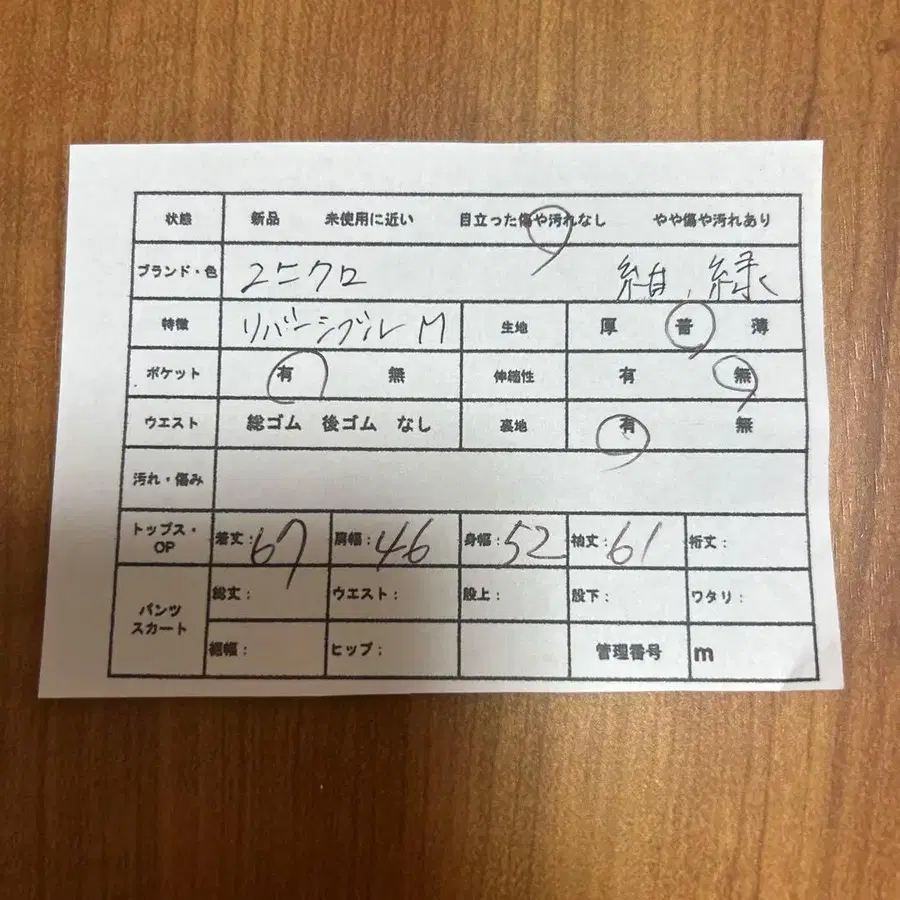 状態 新品 未使用に近い 目立った傷や汚れなし やや傷や汚れあり
ブランド・色 ユニクロ 紺、緑
特徴 リバーシブル M 生地 厚 普 薄
ポケット 有 無 伸縮性 有 無
ウエスト 総ゴム 後ゴム なし 裏地 有 無
汚れ・傷み
トップス・OP 着丈:67 肩幅:46 身幅:52 袖丈:61 裄丈:
パンツ スカート 総丈: ウエスト: 股上: 股下: ワタリ:
裾幅: ヒップ: 管理番号 m